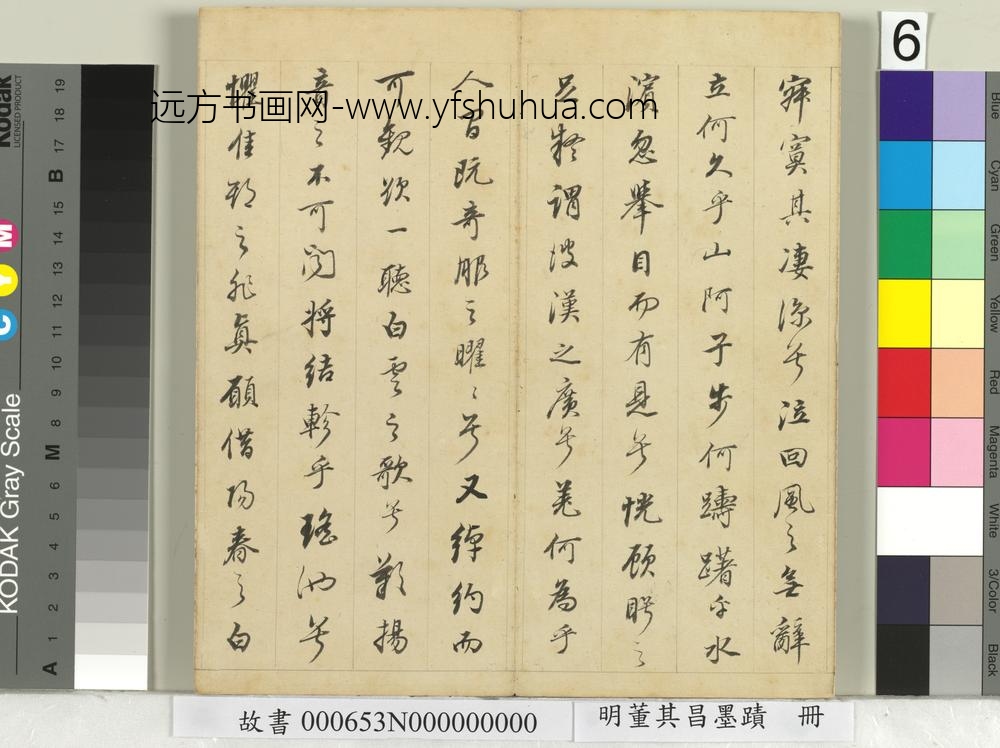 寂寞其淒涼兮泣回風之無辭
立何久乎山阿子步何躊躇乎水
濱忽舉目而有見兮恍顧眄之
足疑謂彼漢之廣兮羌何為乎
人間既奇服之曜曜兮又綽約而
可觀欲一聽白雲之歌兮歎揚
音之不可聞將結軫乎瑤池兮
懼佳期之非真願借陽春之白
远方书画网-www.yfshuhua.com
6
故書 000653N000000000
明董其昌墨蹟 冊
Kodak
LICENSED PRODUCT
KODAK Gray Scale
C Y M
A 1 2 3 4 5 6 M 8 9 10 11 12 13 14 15 B 17 18 19
Blue
Cyan
Green
Yellow
Red
Magenta
White
3/Color
Black